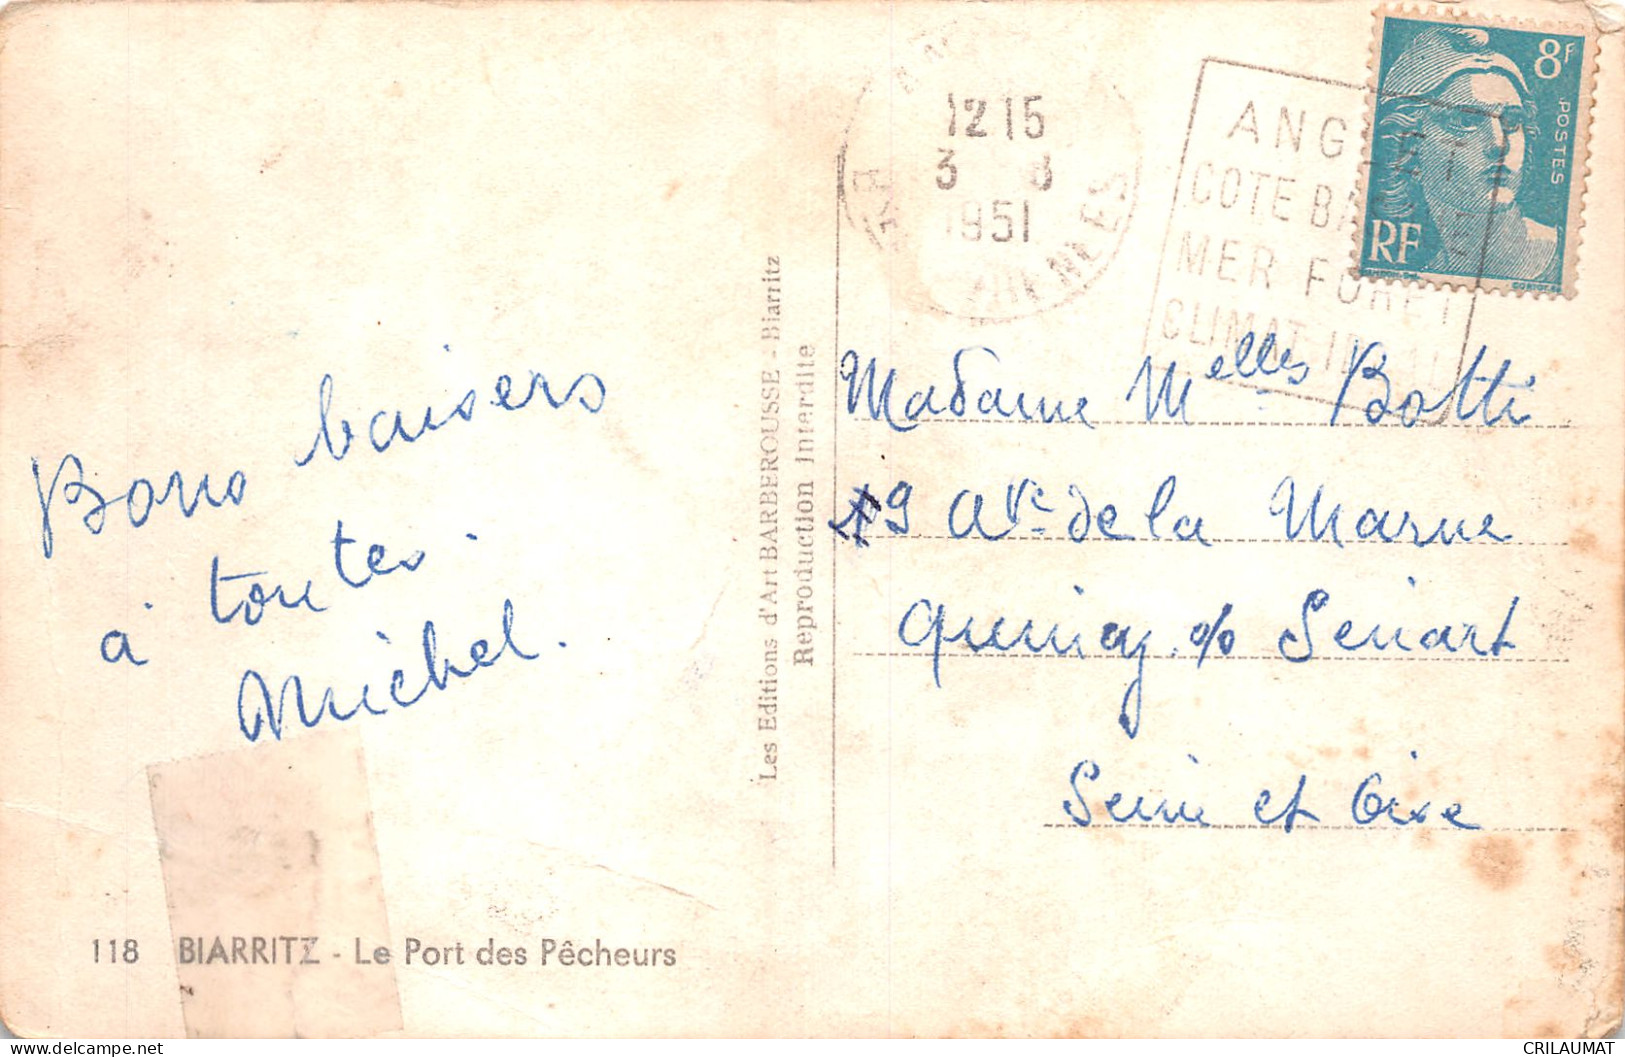 Bons baisers
à toutes.
Michel.
118 BIARRITZ - Le Port des Pêcheurs
Les Editions d'Art BARBEROUSSE - Biarritz
Reproduction Interdite
12 15
3 8
1951
ANGLET
COTE BASQUE
MER FORET
CLIMAT IDEAL
8F
POSTES
RF
Madame Melles Botti
19 Ave de la Marne
Quincy s/s Senart
Seine et Oise
CRILAUMAT